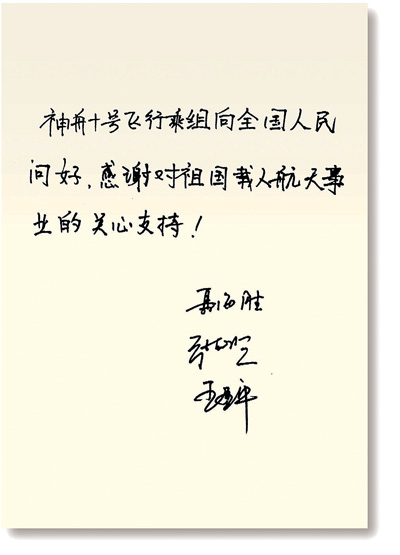 神舟十号飞行乘组向全国人民
问好，感谢对祖国载人航天事
业的关心支持！
聂海胜
张晓光
王亚平